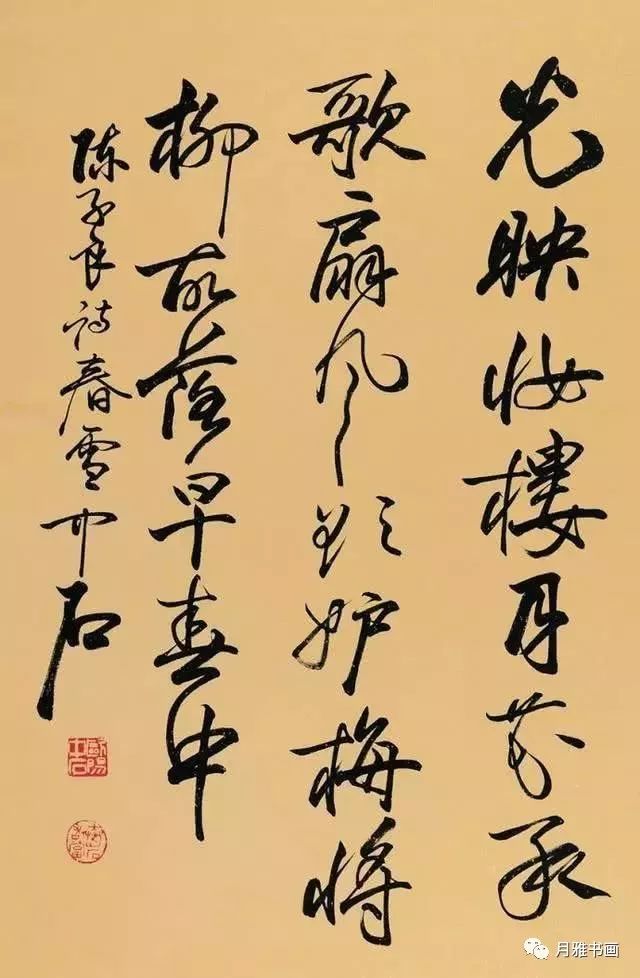 光映妆樓月花承
歌扇风欲妒梅将
柳故落早春中
陈子良诗春雪 中石
歐陽中石
月雅书画